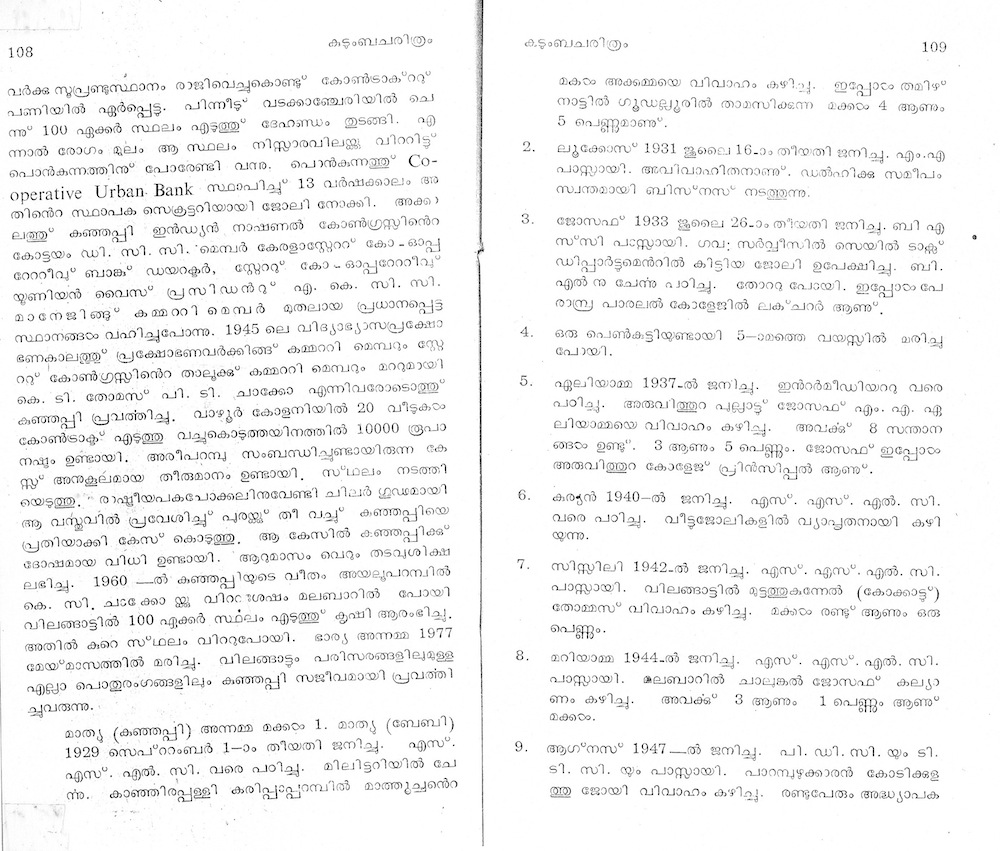 108
കുടുംബചരിത്രം
വർക്കു സൂപ്രണ്ടുസ്ഥാനം രാജിവെച്ചുകൊണ്ടു് കോൺട്രാക്ററു്
പണിയിൽ ഏർപ്പെട്ടു. പിന്നീടു് വടക്കാഞ്ചേരിയിൽ ചെ
ന്നു് 100 ഏക്കർ സ്ഥലം എടുത്തു് ദേഹണ്ഡം തുടങ്ങി. എ
ന്നാൽ രോഗം മൂലം ആ സ്ഥലം നിസ്സാരവിലയ്ക്കു വിററിട്ടു്
പൊൻകുന്നത്തിനു് പോരേണ്ടി വന്നു. പൊൻകുന്നത്തു് Co-
operative Urban Bank സ്ഥാപിച്ചു് 13 വർഷക്കാലം അ
തിൻെറ സ്ഥാപക സെക്രട്ടറിയായി ജോലി നോക്കി. അക്കാ
ലത്തു് കുഞ്ഞപ്പി ഇൻഡ്യൻ നാഷണൽ കോൺഗ്രസ്സിൻെറ
കോട്ടയം ഡി. സി. സി. മെമ്പർ കേരളാസ്റ്റേററ് കോ-ഓപ്പ
റേററീവു് ബാങ്കു് ഡയറക്ടർ, സ്റ്റേററു് കോ-ഓപ്പറേററീവു്
യൂണിയൻ വൈസ് പ്രസിഡൻറു് എ. കെ. സി. സി.
മാനേജിങ്ങു് കമ്മററി മെമ്പർ മുതലായ പ്രധാനപ്പെട്ട
സ്ഥാനങ്ങൾ വഹിച്ചുപോന്നു. 1945 ലെ വിദ്യാഭ്യാസപ്രക്ഷോ
ഭണകാലത്തു് പ്രക്ഷോഭണവർക്കിങ്ങ് കമ്മററി മെമ്പറും സ്റ്റേ
ററു് കോൺഗ്രസ്സിൻെറ താലൂക്കു് കമ്മററി മെമ്പറും മററുമായി
കെ. ടി. തോമസ് പി. ടി. ചാക്കോ എന്നിവരോടൊത്തു്
കുഞ്ഞപ്പി പ്രവർത്തിച്ചു. വാഴൂർ കോളനിയിൽ 20 വീടുകൾ
കോൺട്രാക്ട് എടുത്തു വച്ചുകൊടുത്തയിനത്തിൽ 10000 രൂപാ
നഷ്ടം ഉണ്ടായി. അരീപറമ്പു സംബന്ധിച്ചുണ്ടായിരുന്ന കേ
സ്സ് അനുകൂലമായ തീരുമാനം ഉണ്ടായി. സ്ഥലം നടത്തി
യെടുത്തു. രാഷ്ട്രീയപകപോക്കലിനുവേണ്ടി ചിലർ ഗൂഢമായി
ആ വസ്തുവിൽ പ്രവേശിച്ചു് പുരയ്ക്കു് തീ വച്ചു് കുഞ്ഞപ്പിയെ
പ്രതിയാക്കി കേസ് കൊടുത്തു. ആ കേസിൽ കുഞ്ഞപ്പിക്കു്
ദോഷമായ വിധി ഉണ്ടായി. ആറുമാസം വെറും തടവുശിക്ഷ
ലഭിച്ചു. 1960 —ൽ കുഞ്ഞപ്പിയുടെ വീതം അയലൂപറമ്പിൽ
കെ. സി. ചാക്കോ യ്ക്കു വിററശേഷം മലബാറിൽ പോയി
വിലങ്ങാട്ടിൽ 100 ഏക്കർ സ്ഥലം എടുത്തു് കൃഷി ആരംഭിച്ചു.
അതിൽ കുറെ സ്ഥലം വിററുപോയി. ഭാര്യ അന്നമ്മ 1977
മേയ്മാസത്തിൽ മരിച്ചു. വിലങ്ങാട്ടും പരിസരങ്ങളിലുമുള്ള
എല്ലാ പൊതുരംഗങ്ങളിലും കുഞ്ഞപ്പി സജീവമായി പ്രവർത്തി
ച്ചുവരുന്നു.
മാത്യു (കുഞ്ഞപ്പി) അന്നമ്മ മക്കൾ 1. മാത്യു (ബേബി)
1929 സെപ്ററംബർ 1-ാം തീയതി ജനിച്ചു. എസ്.
എസ്. എൽ. സി. വരെ പഠിച്ചു. മിലിട്ടറിയിൽ ചേ
ർന്നു. കാഞ്ഞിരപ്പള്ളി കരിപ്പാപ്പറമ്പിൽ മാത്തൂച്ചൻെറ
കുടുംബചരിത്രം
109
മകൾ അക്കമ്മയെ വിവാഹം കഴിച്ചു. ഇപ്പോൾ തമിഴ്
നാട്ടിൽ ഗൂഡല്ലൂരിൽ താമസിക്കുന്നു മക്കൾ 4 ആണും
5 പെണ്ണുമാണു്.
2. ലൂക്കോസ് 1931 ജൂലൈ 16-ാം തീയതി ജനിച്ചു. എം.എ
പാസ്സായി. അവിവാഹിതനാണു്. ഡൽഹിക്കു സമീപം
സ്വന്തമായി ബിസ്നസ് നടത്തുന്നു.
3. ജോസഫ് 1933 ജൂലൈ 26-ാം തീയതി ജനിച്ചു. ബി എ
സ്സി പാസ്സായി. ഗവ: സർവ്വീസിൽ സെയിൽ ടാക്സ്
ഡിപ്പാർട്ടുമെൻറിൽ കിട്ടിയ ജോലി ഉപേക്ഷിച്ചു. ബി.
എൽ നു ചേർന്നു പഠിച്ചു. തോററു പോയി. ഇപ്പോൾ പേ
രാമ്പ്ര പാരലൽ കോളേജിൽ ലക്ചറർ ആണു്.
4. ഒരു പെൺകുട്ടിയുണ്ടായി 5-ാമത്തെ വയസ്സിൽ മരിച്ചു
പോയി.
5. ഏലിയാമ്മ 1937-ൽ ജനിച്ചു. ഇൻറർമീഡിയററു വരെ
പഠിച്ചു. അരുവിത്തുറ പുല്ലാട്ടു് ജോസഫ് എം. എ. ഏ
ലിയാമ്മയെ വിവാഹം കഴിച്ചു. അവർക്കു് 8 സന്താന
ങ്ങൾ ഉണ്ടു്. 3 ആണും 5 പെണ്ണും. ജോസഫ് ഇപ്പോൾ
അരുവിത്തുറ കോളേജ് പ്രിൻസിപ്പൽ ആണു്.
6. കുര്യൻ 1940-ൽ ജനിച്ചു. എസ്. എസ്. എൽ. സി.
വരെ പഠിച്ചു. വീട്ടുജോലികളിൽ വ്യാപൃതനായി കഴി
യുന്നു.
7. സിസ്സിലി 1942-ൽ ജനിച്ചു. എസ്. എസ്. എൽ. സി.
പാസ്സായി. വിലങ്ങാട്ടിൽ മുട്ടത്തുകുന്നേൽ (കോക്കാട്ടു്)
തോമ്മസ് വിവാഹം കഴിച്ചു. മക്കൾ രണ്ടു് ആണും ഒരു
പെണ്ണും.
8. മറിയാമ്മ 1944-ൽ ജനിച്ചു. എസ്. എസ്. എൽ. സി.
പാസ്സായി. മലബാറിൽ ചാലുങ്കൽ ജോസഫ് കല്യാ
ണം കഴിച്ചു. അവർക്കു് 3 ആണും 1 പെണ്ണും ആണു്
മക്കൾ.
9. ആഗ്നസ് 1947—ൽ ജനിച്ചു. പി. ഡി. സി. യും ടി.
ടി. സി. യും പാസ്സായി. പാറമ്പുഴക്കാരൻ കോടിക്കുള
ത്തു ജോയി വിവാഹം കഴിച്ചു. രണ്ടുപേരും അദ്ധ്യാപക